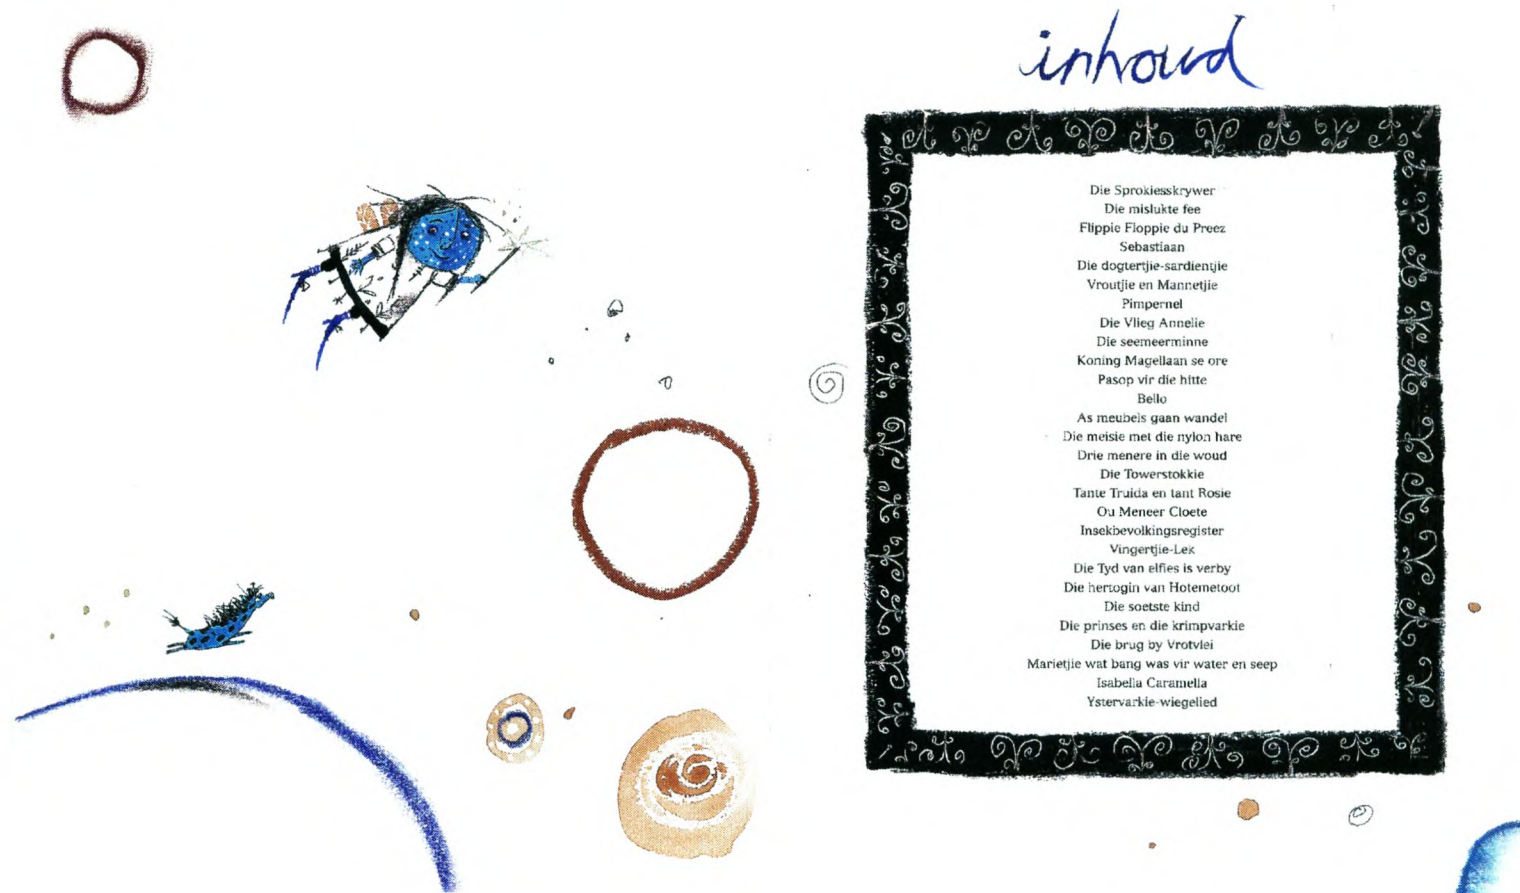 inhoud
Die Sprokiesskrywer
Die mislukte fee
Flippie Floppie du Preez
Sebastiaan
Die dogtertjie-sardientjie
Vroutjie en Mannetjie
Pimpernel
Die Vlieg Annelie
Die seemeerminne
Koning Magellaan se ore
Pasop vir die hitte
Bello
As meubels gaan wandel
Die meisie met die nylon hare
Drie menere in die woud
Die Towerstokkie
Tante Truida en tant Rosie
Ou Meneer Cloete
Insekbevolkingsregister
Vingertjie-Lek
Die Tyd van elfies is verby
Die hertogin van Hotemetoot
Die soetste kind
Die prinses en die krimpvarkie
Die brug by Vrotvlei
Marietjie wat bang was vir water en seep
Isabella Caramella
Ystervarkie-wiegelied